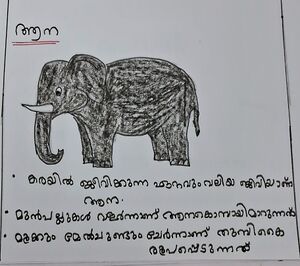 ആന
• കരയിൽ ജീവിക്കുന്ന ഏറ്റവും വലിയ ജീവിയാണ്
ആന.
• മുൻപല്ലുകൾ വളർന്നാണ് ആനകൊമ്പായി മാറുന്നത്
• മൂക്കും മേൽചുണ്ടും ചേർന്നാണ് തുമ്പികൈ
രൂപപ്പെടുന്നത്